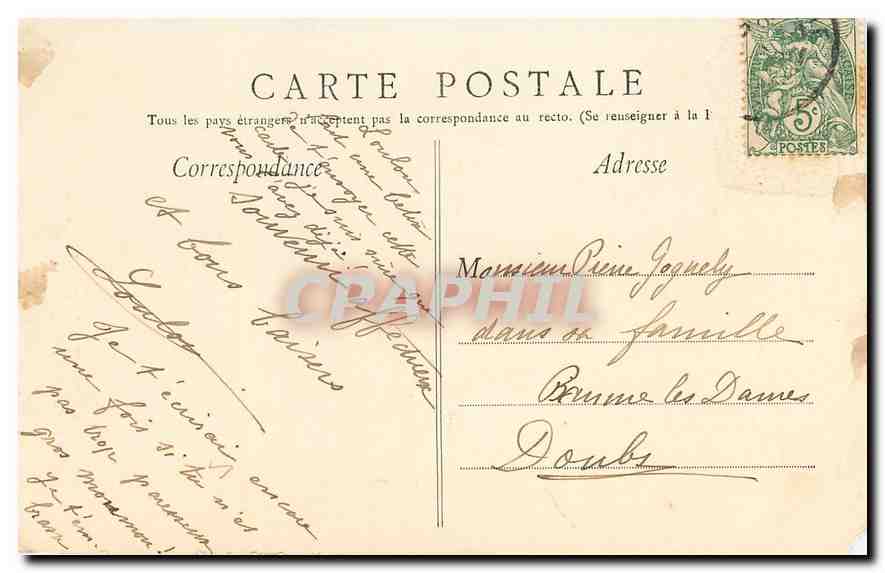 CARTE POSTALE
Tous les pays étrangers n'acceptent pas la correspondance au recto. (Se renseigner à la P
Correspondance
Adresse
5c
POSTES
Loulou
est une bétis
de t'envoyer cette
carte je suis sûre que
vous l'avez déjà
Souvenir affectueux
et bons
baisers
Loulou
Je t'écrirai encore
une fois si tu n'es
pas trop paresseux
gros
Je t'em-
brasse
Monsieur Pierre Goguely
dans sa famille
Baume les Dames
Doubs
CPAPHIL